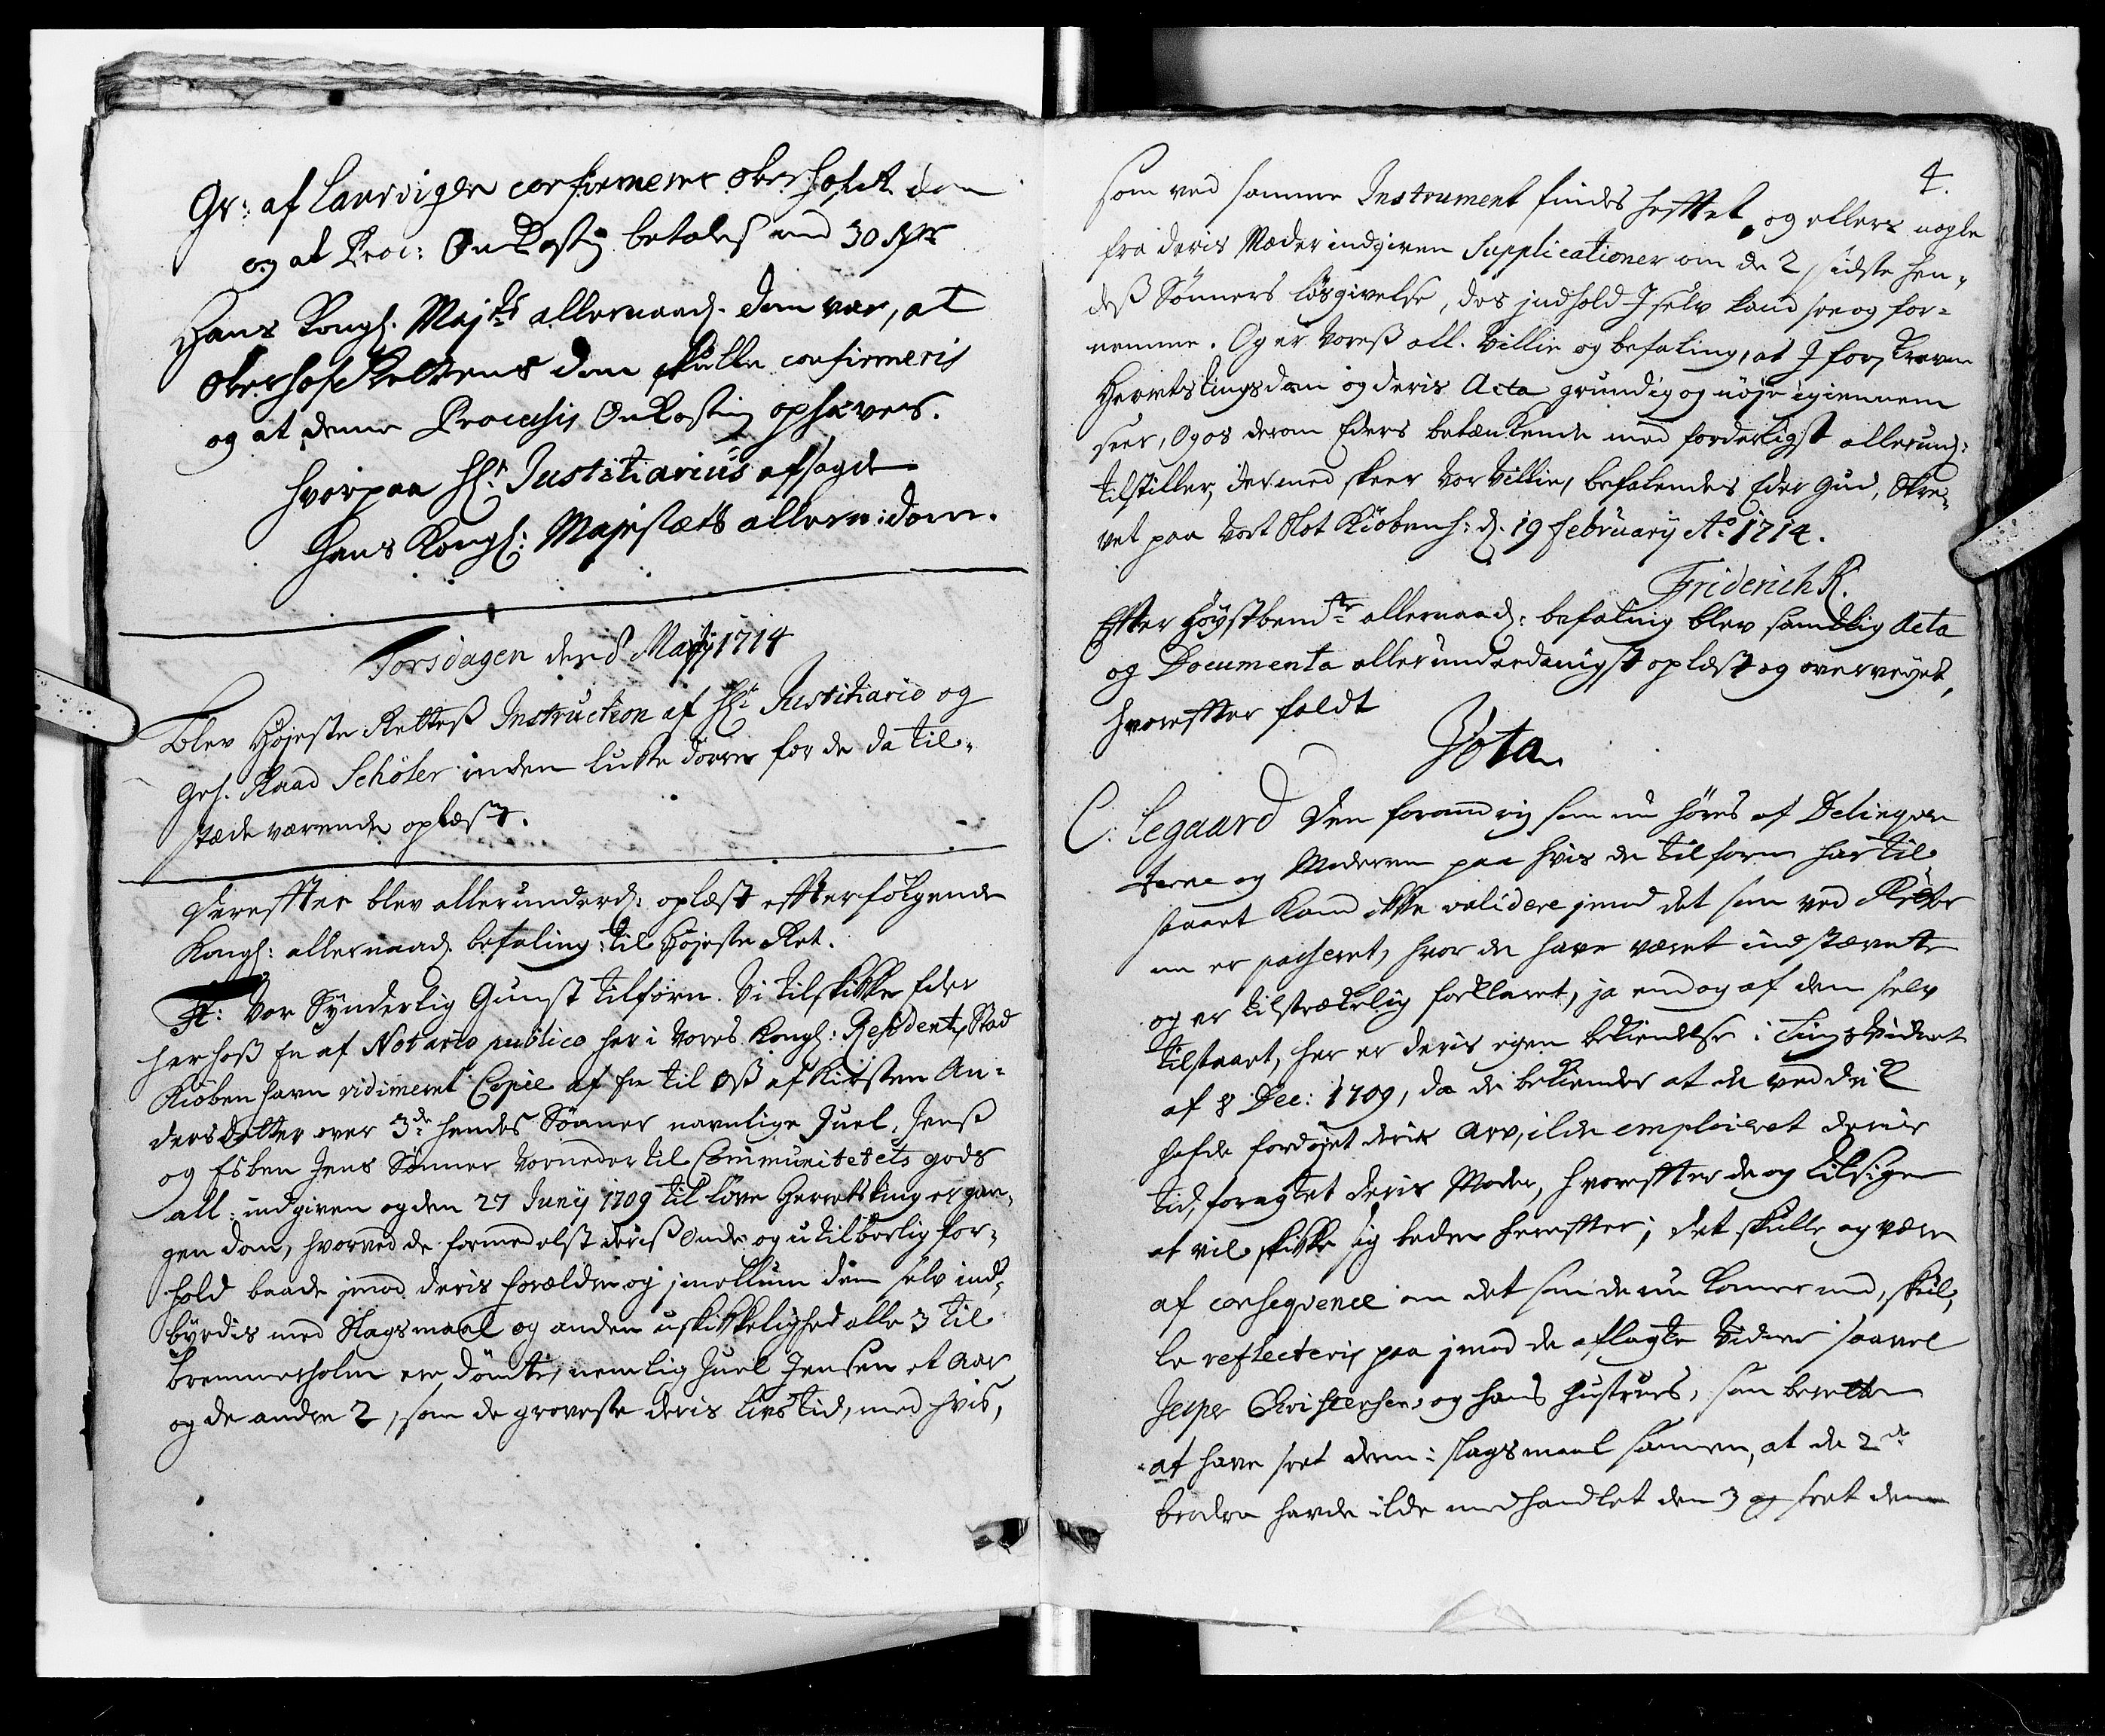 Gr: af Laurvigen confirmerer Oberhofr: dom
og at Proc: Omkostn: betales med 30 Rdr
Hans Kongl. Majts allernaad. dom var, at
Oberhofrettens dom skulle confirmeris
og at denne Processis Omkostning ophæves.
hvorpaa Hr Justitiarius afsagde
Hans Kongl: Majestæts allern: dom.
Torsdagen den 8 Martij 1714
Blev Højeste Retteß Instruction af Hr Justitiario og
Geh. Raad Schöler inden lukte dørre for de da til-
stæde værende oplæst.
Dereffter blev allerunderd: oplæst effterfølgende
Kongl: allernaad. befaling til Højeste Ret.
Fr: Vor Synderlig Gunst tilforn. Vi tilskikke Eder
herhoß en af Notario publico her i vores Kongl: Residentz Stad
Kiøbenhavn vidimeret Copie af en til oß af Kirsten An-
dersdatter over 3de hendes Sønner navnlige Juel, Jenß
og Esben Jens Sønner Vorneder til Communitetets gods
all: indgiven og den 27 Junij 1709 til Løve Herretsting ergan-
gen dom, hvorved de formedelst deriß onde og utilbørlig for-
hold baade imod deris forældre og imellum dem selv ind-
byrdis med Slagsmaal og anden uskikkelighed alle 3 til
Bremmerholm ere dømte, nemlig Juel Jensen et Aar
og de andre 2, som de groveste deris Livs tid, med hvis,
4.
som ved samme Instrument findes hefftet, og ellers nogle
fra deris Moder indgiven Supplicationer om de 2 sidste hen-
deß Sønners løsgivelse, des indhold I selv kand see og for-
nemme. Og er voreß all. villie og befaling, at I forskreven
Herretstings dom og deris Acta grundig og nøje igiennem
seer, og os derom Eders betænkende med forderligst allerund:
tilstiller, dermed skeer vor villie, befalendes Eder Gud, Skre-
vet paa vort Slot Kiøbenh: d. 19 February Ao 1714.
Friderich R.
Effter høystbemte allernaad: befaling blev samtlig Acta
og Documenta allerunderdanigst oplæst og overveyet,
hvoreffter faldt
Vota.
C: Legaard Den forandring som nu høres af Delinqven
terne og Moderen paa hvis de tilforn har til
staaet kand ikke validere imod det som ved Retter
nu er passeret, hvor de have været indstævnt
og er tilstrækkelig forklaret, ja endog af dem selv
tilstaaet, her er deris egen bekiendelse i Tings Vidnet
af 8 Dec: 1709, da de bekiender at de ved drik
hafde forødet deris Arv, ilde emploieret deris
tid, foragtet deris Moder, hvoreffter de og tilsige
at vil skikke sig bedre hereffter; det skulle og være
af conseqvence om det som de nu komme med, skul-
le reflecteris paa imod de aflagte Vidner saavel
Jesper Christensen og hans hustrues, som beretter
at have seet dem i slagsmaal sammen, at de 2de
brødre havde ilde medhandlet den 3 og seet dem